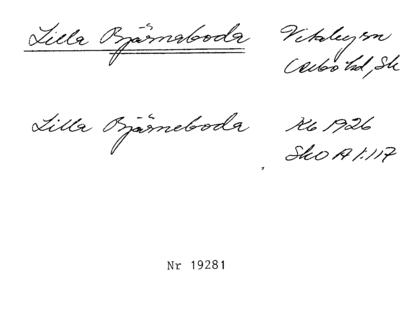 Lilla Bjärnaboda Vitaby sn
Albo hd, Sk
Lilla Bjärneboda Kb 1926
SkO A 1:117
Nr 19281